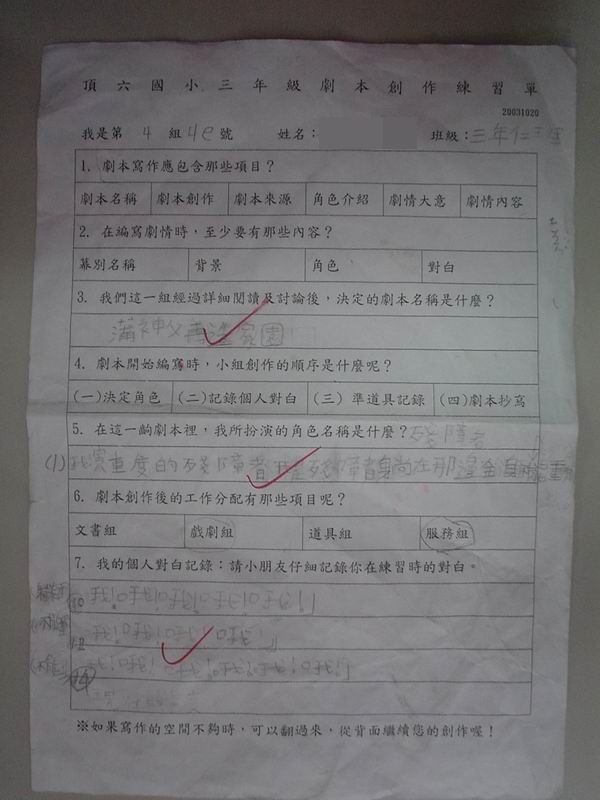 頂六國小三年級劇本創作練習單
20031020
我是第 4 組 4e 號 姓名： 班級：三年仁班
1. 劇本寫作應包含那些項目？
劇本名稱 劇本創作 劇本來源 角色介紹 劇情大意 劇情內容
2. 在編寫劇情時，至少要有那些內容？
幕別名稱 背景 角色 對白
3. 我們這一組經過詳細閱讀及討論後，決定的劇本名稱是什麼？
蒲神父再造家園
4. 劇本開始編寫時，小組創作的順序是什麼呢？
(一)決定角色 (二)記錄個人對白 (三) 準道具記錄 (四)劇本抄寫
5. 在這一齣劇本裡，我所扮演的角色名稱是什麼？殘障者
(1)我 重度的殘障者
6. 劇本創作後的工作分配有那些項目呢？
文書組 戲劇組 道具組 服務組
7. 我的個人對白記錄：請小朋友仔細記錄你在練習時的對白。
10 我!我!我!我!我!
12 我!我!我!我!
14 我!我!我!我!我!我!
※如果寫作的空間不夠時，可以翻過來，從背面繼續您的創作喔！